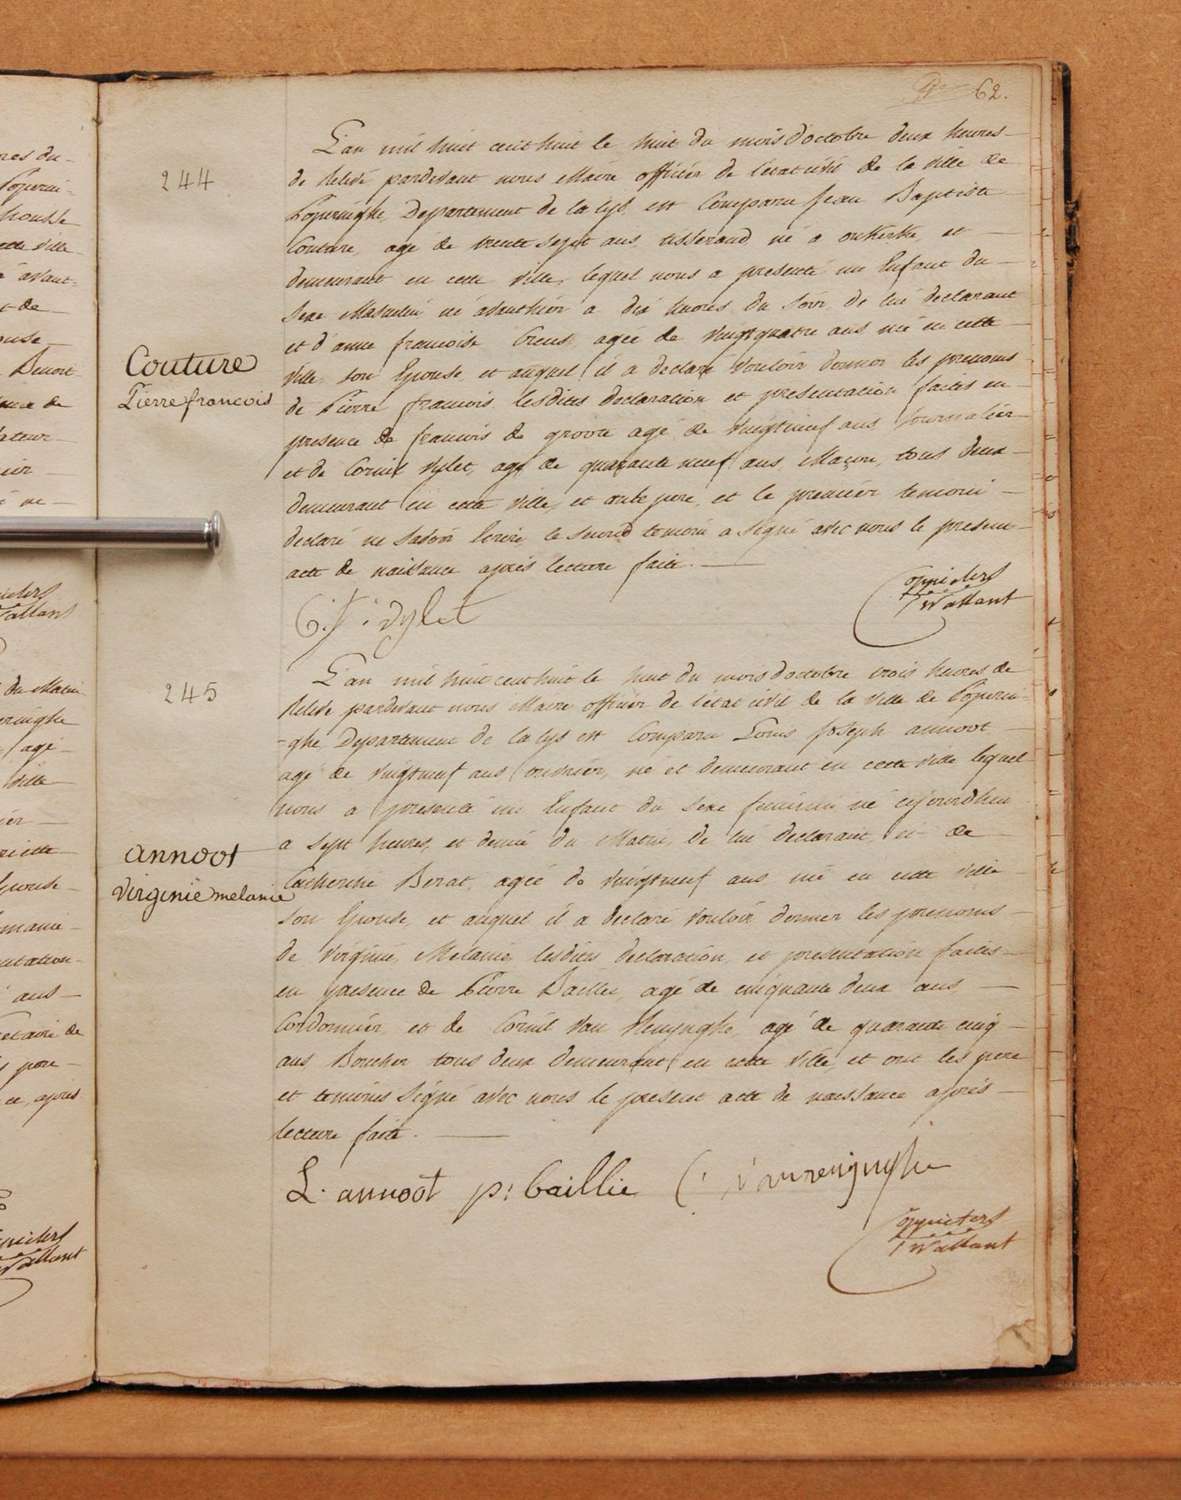 62.
244
L'an mil huit cent huit le huit du mois d'octobre deux heures
de relevé pardevant nous Maire officier de l'état civil de la ville de
Poperinghe, Departement de la lys, est Comparu Jean Baptiste
Couture, agé de trente sept ans, tisserand, né a et
demeurant en cette ville, lequel nous a presenté un Enfant du
Sexe Masculin né avanthier a dix heures du soir, de lui declarant
et d'anne francoise agée de vingtquatre ans née en cette
ville, son Epouse, et auquel il a declaré vouloir donner les prenoms
Couture
Pierre francois
de Pierre francois, lesdites declaration et presentation faites en
presence de francois de groote agé de vingtneuf ans, Journalier
et de Cornil Vylet, agé de quarante neuf ans, Maçon, tous deux
demeurant en cette ville, et ont le pere, et le premier temoin
declaré ne savoir Ecrire, le second temoin a signé avec nous le present
acte de naissance après lecture faite.
C: J: Vylet
Coppieters
T'Wallant
245
L'an mil huit cent huit le huit du mois d'octobre trois heures de
relevé pardevant nous Maire officier de l'état civil de la ville de Poperin-
-ghe, Departement de la lys est Comparu Louis Joseph annoot
agé de vingtneuf ans, né et demeurant en cette ville lequel
nous a presenté un Enfant du sexe feminin né aujourdhui
a sept heures et demie du Matin, de lui declarant, et de
annoot
Catherine Berat, agée de vingtneuf ans née en cette ville
virginie melanie
son Epouse, et auquel il a declaré vouloir donner les prenoms
de Virginie, Melanie, lesdites declaration, et presentation faites
en presence de Pierre Baillie, agé de cinquante deux ans,
Cordonnier, et de Cornil Van Renynghe, agé de quarante cinq
ans Boucher tous deux demeurant en cette ville, et ont les pere
et temoins signé avec nous le present acte de naissance après
lecture faite.
L. annoot p: baillie C: vanrenynghe
Coppieters
T'Wallant